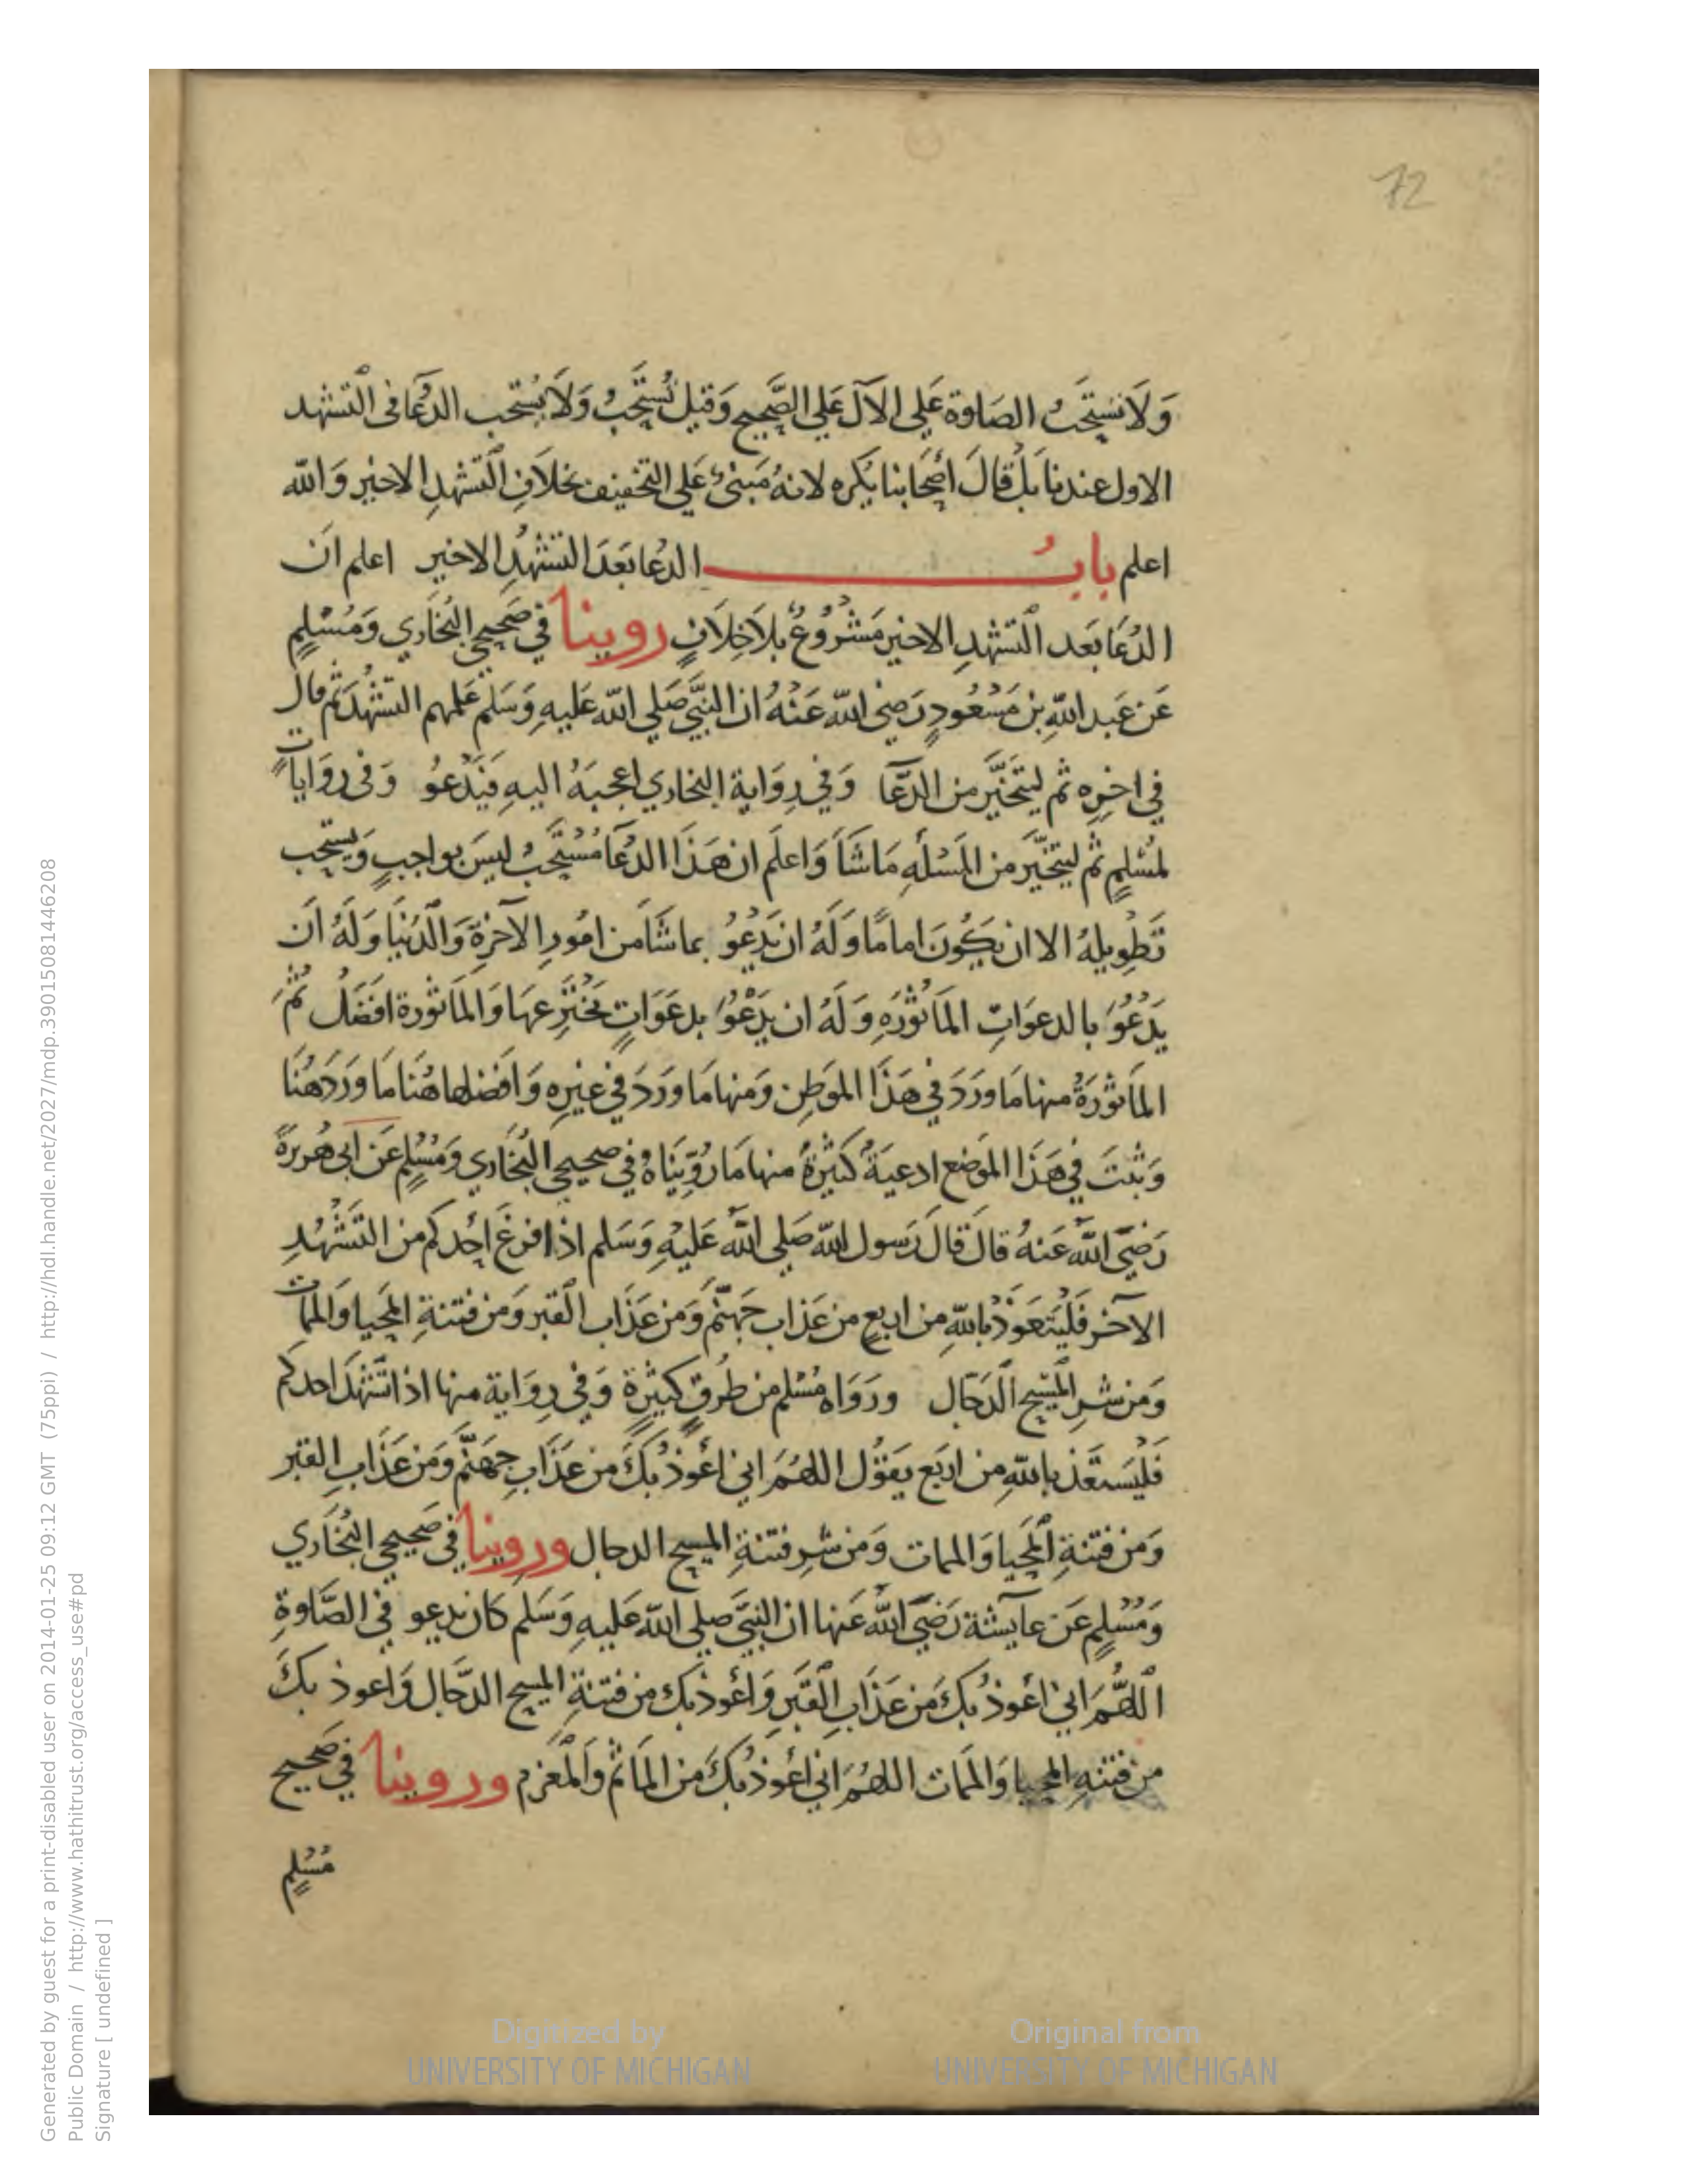 72
وَلَا تستَحَبُّ الصَلوة عَلى الآل عَلي الصَّحِيح وَقيل تُستَحَبُّ وَلَا يُستَحب الدعَآ فى التشهد
الاول عندنا بَلْ قالَ أصحَابنا يكره لانهُ مَبنىٌ عَلى التخفيف بخلَافِ التشهدِ الاخير وَالله
اعلم بابُ الدعا بَعدَ التشهُّدِ الاخير اعلم انَ
الدعَا بَعد التشهدِ الاخير مَشْرُوْعٌ بلَا خِلَافٍ روينا في صَحيحي البُخَاري وَمُسْلمٍ
عَن عَبد اللهِ بن مَسْعُودٍ رَضى الله عَنْهُ ان النبيَّ صَلي الله عَليهِ وَسَلم عَلمهم التشهُّدَ ثم قال
في اخرِه ثم ليتخَيَّر من الدعَّا وَفي رِوَاية البخاري اعجبَهُ اليهِ فيَدْعوُ وَفى روَاياتٍ
لمُسْلمٍ ثم ليتخيَّر من المَسْلَهِ مَا شَآ وَاعلَم ان هَذَا الدعَآ مُسْتحَبٌ ليسَ بواجبٍ وَيستحب
تَطْويلهُ الا ان يكُونَ امامًا وَلَهُ ان يَدْعوُ بما شَآ من امُورِ الآخرةَ وَالدُنيَا وَلَهُ اَن
يَدْعُوَ بالدعوَاتِ المَاثوُرَهِ وَلَهُ ان يَدْعُوَ بدعَوَاتٍ يَخْترِعهَا وَالمَاثورة افضَلُ ثُمَّ
المَاثورَةُ منها مَا ورَدَ في هَذَا الموَطِن وَمنها مَا ورَدَ في غيرِه وَافضلها هُنا مَا ورَدَ هُنَا
وَثبتَ في هَذَا الموَضع ادعيَةٌ كَثيرةٌ منها مَا رُوِّينَاهُ في صحيحي البُخَاري وَمُسْلمٍ عَن ابى هُريرَةَ
رَضَيَ الله عَنهُ قالَ قالَ رَسول الله صَلى الله عَليْهِ وَسَلم اذا فرغَ اَحدكم من التشَهُدِ
الآخر فَليتعَوذْ بالله من اربعٍ من عَذاب جَهنَّم وَمن عَذَاب القبر وَمن فتنةِ المحيا وَالممات
وَمن شرِ المَسيح الدَّجال ورَوَاه مُسْلم من طُرقٍ كثيرةٍ وَفي رِوَاية منها اذا تشَهدَ احدكم
فَليَستَعَذ باللهِ من اربَع يقوُل اللهُمَ اني اعُوذُ بكَ من عَذَابِ جهَنَّم وَمن عَذَابِ القبر
وَمن فتنةِ المَحيا وَالممات وَمن شرِ فتنةِ المسيح الدجال وروينا فى صَحيحي البُخَاري
وَمُسْلمٍ عَن عآيشة رَضَيَ الله عَنها ان النبيَّ صلى الله عَليهِ وَسَلم كان يدعو في الصَّلوةِ
اللهُّمَ اني اعُوذُ بكَ من عَذَابِ القَبرِ وَاعُوذ بك من فتنةِ المسيح الدَّجال وَاعوذ بكَ
من فتنهِ المحيا وَالممَات اللهُمَ اني اعُوذ بكَ من المَاثم وَالمغرَم وروينا في صحيح
مُسْلمٍ
Digitized by UNIVERSITY OF MICHIGAN
Original from UNIVERSITY OF MICHIGAN
Generated by guest for a print-disabled user on 2014-01-25 09:12 GMT (75ppi) / http://hdl.handle.net/2027/mdp.39015081446208
Public Domain / http://www.hathitrust.org/access_use#pd
Signature [ undefined ]